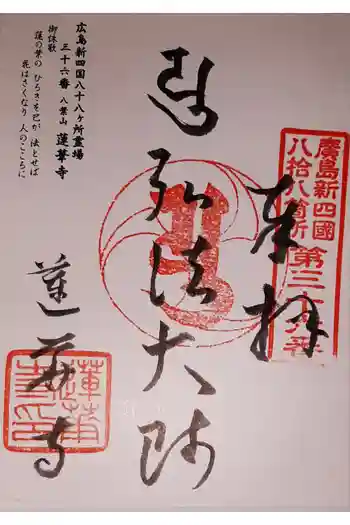 廣島新四國
八拾八箇所
第三十六番
奉拝
弘法大師
蓮華寺
広島新四国八十八ヶ所霊場
三十六番 八葉山 蓮華寺
御詠歌
蓮の葉の ひろきを己が 法とせば
花はさくなり 人のこころに
蓮華
寺印